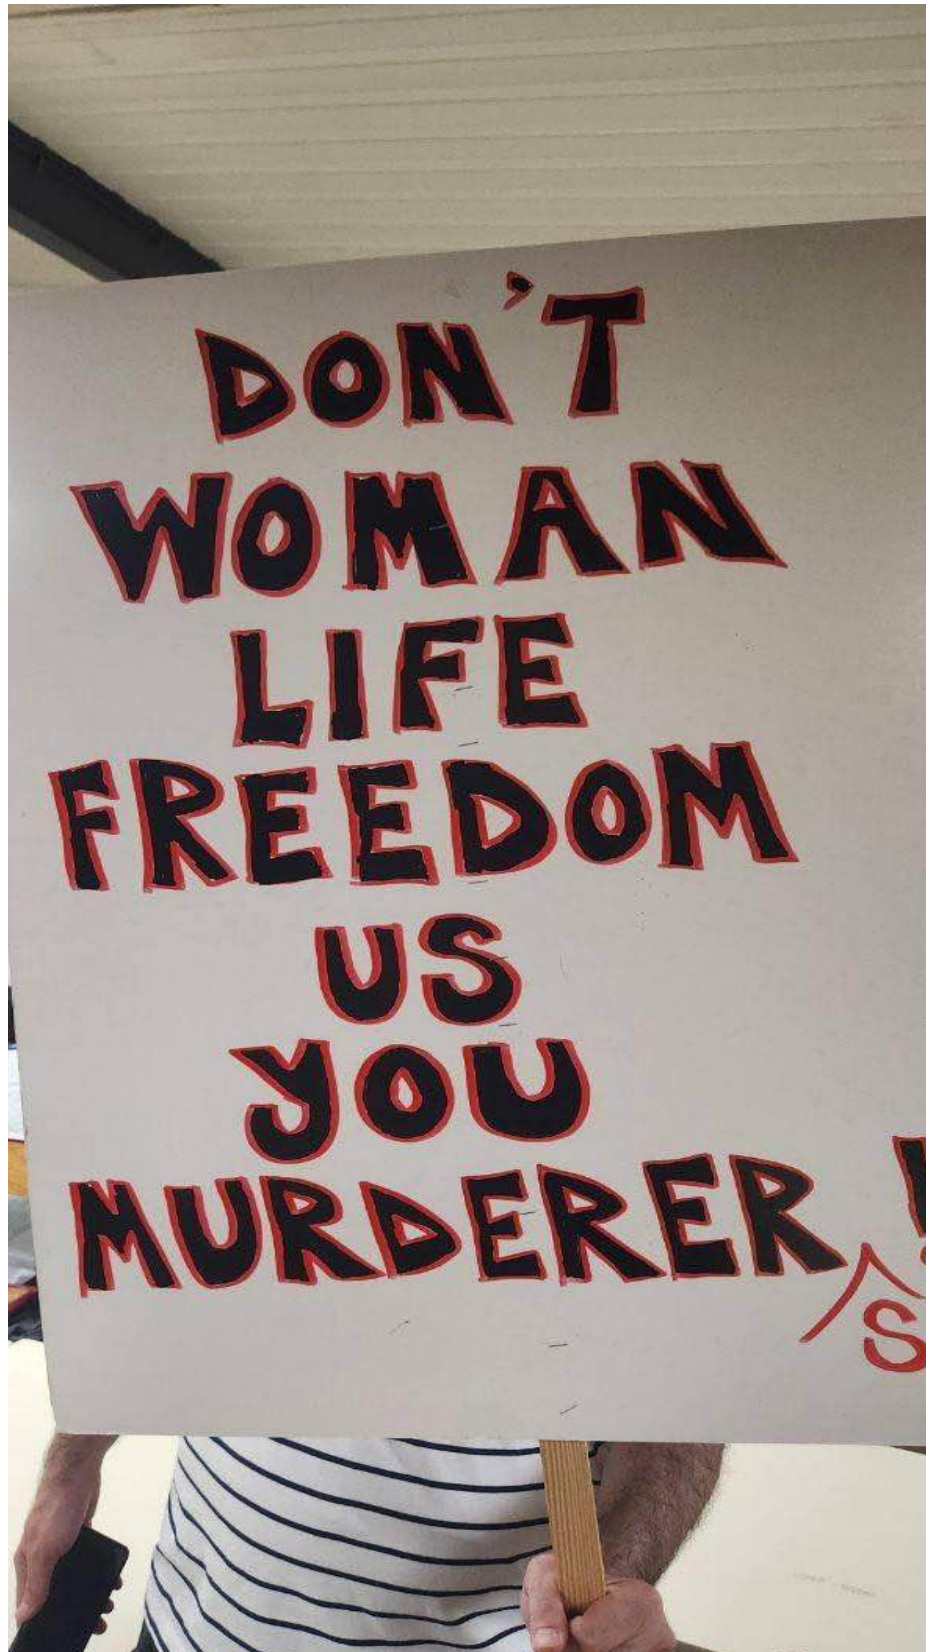 DON'T
WOMAN
LIFE
FREEDOM
US
YOU
MURDERER !
S